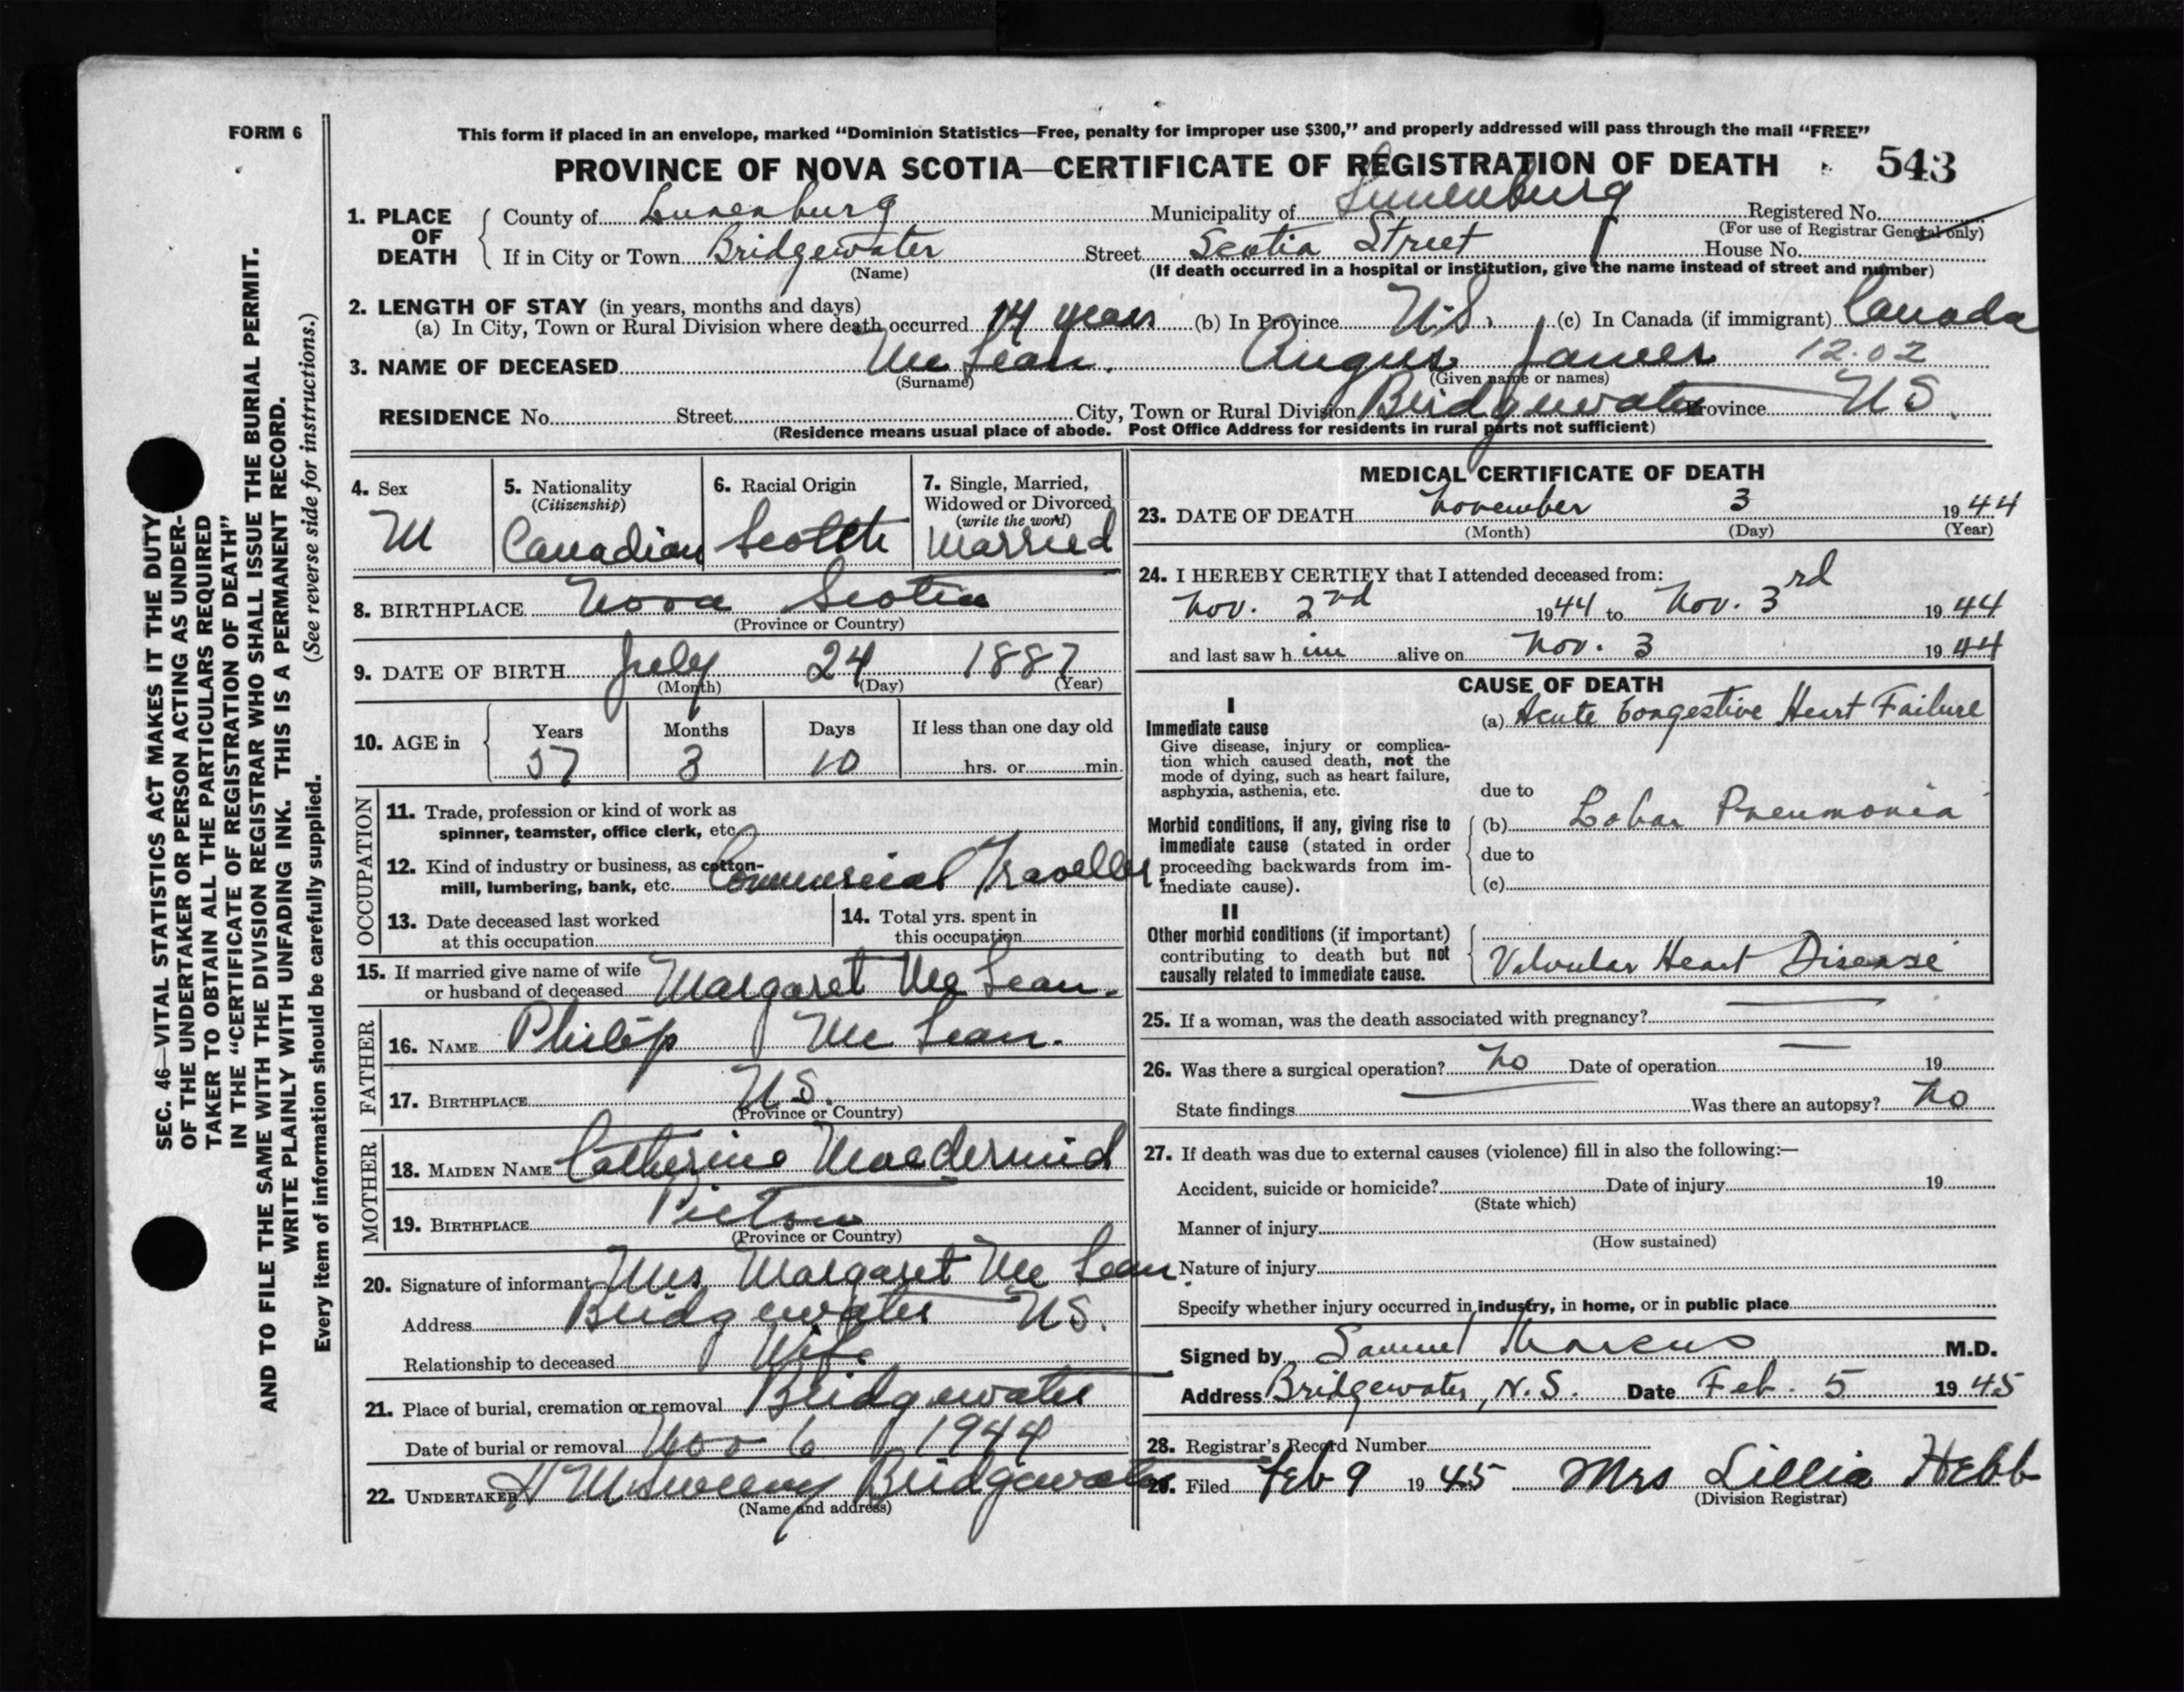 FORM 6
This form if placed in an envelope, marked "Dominion Statistics—Free, penalty for improper use $300," and properly addressed will pass through the mail "FREE"
PROVINCE OF NOVA SCOTIA—CERTIFICATE OF REGISTRATION OF DEATH 543
1. PLACE OF DEATH
County of Lunenburg Municipality of Lunenburg Registered No.
(For use of Registrar General only)
If in City or Town Bridgewater Street Scotia Street House No.
(Name) (If death occurred in a hospital or institution, give the name instead of street and number)
2. LENGTH OF STAY (in years, months and days)
(a) In City, Town or Rural Division where death occurred 14 years (b) In Province N.S. (c) In Canada (if immigrant) Canada
3. NAME OF DECEASED Mc Lean. Angus James 12.02
(Surname) (Given name or names)
RESIDENCE No. Street City, Town or Rural Division Bridgewater Province NS.
(Residence means usual place of abode. Post Office Address for residents in rural parts not sufficient)
4. Sex
M
5. Nationality
(Citizenship)
Canadian
6. Racial Origin
Scotch
7. Single, Married,
Widowed or Divorced
(write the word)
Married
8. BIRTHPLACE Nova Scotia
(Province or Country)
9. DATE OF BIRTH July 24 1887
(Month) (Day) (Year)
10. AGE in
Years Months Days If less than one day old
57 3 10 hrs. or min.
OCCUPATION
11. Trade, profession or kind of work as
spinner, teamster, office clerk, etc.
12. Kind of industry or business, as cotton-
mill, lumbering, bank, etc. Commercial Traveller
13. Date deceased last worked
at this occupation
14. Total yrs. spent in
this occupation
15. If married give name of wife
or husband of deceased Margaret Mc Lean.
FATHER
16. NAME Philip Mc Lean.
17. BIRTHPLACE NS.
(Province or Country)
MOTHER
18. MAIDEN NAME Catherine Macdermid
19. BIRTHPLACE Pictou
(Province or Country)
20. Signature of informant Mrs Margaret Mc Lean.
Address Bridgewater NS.
Relationship to deceased Wife
21. Place of burial, cremation or removal Bridgewater
Date of burial or removal Nov 6 1944
22. UNDERTAKER H McSweeny Bridgewater
(Name and address)
MEDICAL CERTIFICATE OF DEATH
23. DATE OF DEATH November 3 1944
(Month) (Day) (Year)
24. I HEREBY CERTIFY that I attended deceased from:
Nov. 2nd 1944 to Nov. 3rd 1944
and last saw him alive on Nov. 3 1944
CAUSE OF DEATH
I
Immediate cause
Give disease, injury or complica-
tion which caused death, not the
mode of dying, such as heart failure,
asphyxia, asthenia, etc.
(a) Acute Congestive Heart Failure
due to
Morbid conditions, if any, giving rise to
immediate cause (stated in order
proceeding backwards from im-
mediate cause).
(b) Lobar Pneumonia
due to
(c)
II
Other morbid conditions (if important)
contributing to death but not
causally related to immediate cause.
Valvular Heart Disease
25. If a woman, was the death associated with pregnancy?
26. Was there a surgical operation? No Date of operation 19
State findings Was there an autopsy? No
27. If death was due to external causes (violence) fill in also the following:—
Accident, suicide or homicide? Date of injury 19
(State which)
Manner of injury
(How sustained)
Nature of injury
Specify whether injury occurred in industry, in home, or in public place
Signed by Samuel Marcus M.D.
Address Bridgewater, N.S. Date Feb. 5 1945
28. Registrar's Record Number
29. Filed Feb 9 1945 Mrs Lillia Hebb
(Division Registrar)
SEC. 46—VITAL STATISTICS ACT MAKES IT THE DUTY
OF THE UNDERTAKER OR PERSON ACTING AS UNDER-
TAKER TO OBTAIN ALL THE PARTICULARS REQUIRED
IN THE "CERTIFICATE OF REGISTRATION OF DEATH"
AND TO FILE THE SAME WITH THE DIVISION REGISTRAR WHO SHALL ISSUE THE BURIAL PERMIT.
WRITE PLAINLY WITH UNFADING INK. THIS IS A PERMANENT RECORD.
Every item of information should be carefully supplied. (See reverse side for instructions.)